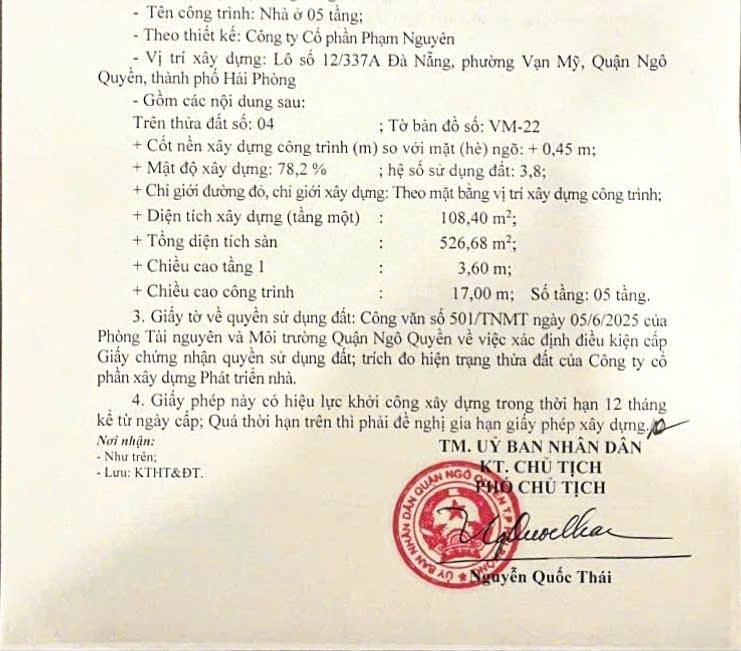 - Tên công trình: Nhà ở 05 tầng;
- Theo thiết kế: Công ty Cổ phần Phạm Nguyên
- Vị trí xây dựng: Lô số 12/337A Đà Nẵng, phường Vạn Mỹ, Quận Ngô
Quyền, thành phố Hải Phòng
- Gồm các nội dung sau:
Trên thửa đất số: 04 ; Tờ bản đồ số: VM-22
+ Cốt nền xây dựng công trình (m) so với mặt (hè) ngõ: + 0,45 m;
+ Mật độ xây dựng: 78,2 % ; hệ số sử dụng đất: 3,8;
+ Chỉ giới đường đỏ, chỉ giới xây dựng: Theo mặt bằng vị trí xây dựng công trình;
+ Diện tích xây dựng (tầng một) : 108,40 m²;
+ Tổng diện tích sàn : 526,68 m²;
+ Chiều cao tầng 1 : 3,60 m;
+ Chiều cao công trình : 17,00 m; Số tầng: 05 tầng.
3. Giấy tờ về quyền sử dụng đất: Công văn số 501/TNMT ngày 05/6/2025 của
Phòng Tài nguyên và Môi trường Quận Ngô Quyền về việc xác định điều kiện cấp
Giấy chứng nhận quyền sử dụng đất; trích đo hiện trạng thửa đất của Công ty cổ
phần xây dựng Phát triển nhà.
4. Giấy phép này có hiệu lực khởi công xây dựng trong thời hạn 12 tháng
kể từ ngày cấp; Quá thời hạn trên thì phải đề nghị gia hạn giấy phép xây dựng.
Nơi nhận:
- Như trên;
- Lưu: KTHT&ĐT.
TM. UỶ BAN NHÂN DÂN
KT. CHỦ TỊCH
PHÓ CHỦ TỊCH
ỦY BAN NHÂN DÂN QUẬN NGÔ QUYỀN T.P
Nguyễn Quốc Thái